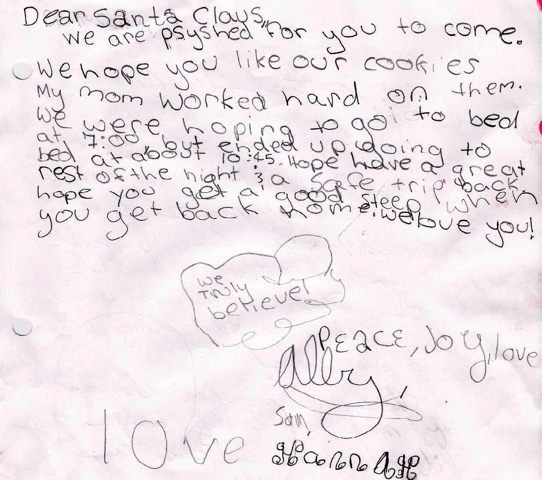 Dear Santa Claus,
we are psyshed for you to come.
We hope you like our cookies
My mom worked hard on them.
We were hoping to go to bed
at 7:00 but ended up going to
bed at about 10:45. Hope have a great
rest of the night & a safe trip back,
hope you get a good sleep when
you get back home. we love you!
we
truly
believe!
PEACE, Joy, love
Ally,
Sam,
HannaH
love